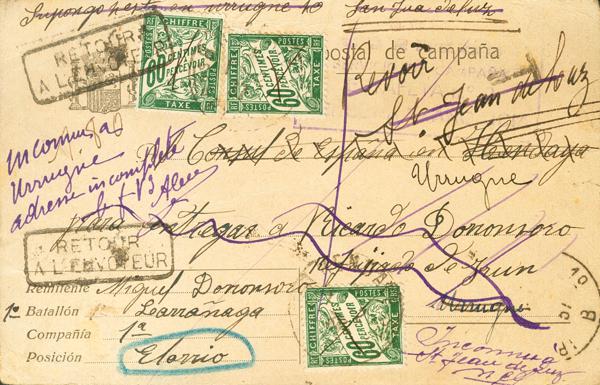 Supongo Urrugne San Juan de Luz
RETOUR
A L'ENVOYEUR
CHIFFRE TAXE POSTES RF
60 CENTIMES À PERCEVOIR
CHIFFRE TAXE POSTES RF
60 CENTIMES À PERCEVOIR
postal de campaña
Revoir
St Jean de Luz
Inconnu à
Urrugne
adresse incomplète
Consul de España en Hendaya
Urrugne
para entregar a Ricardo Dononsoro
refugiado de Irun
Urrugne
RETOUR
A L'ENVOYEUR
Remitente Miguel Dononsoro
1º Batallón Larrañaga
Compañía 1ª
Posición Elorrio
CHIFFRE TAXE POSTES RF
60 CENTIMES À PERCEVOIR
Inconnu
St Jean de Luz